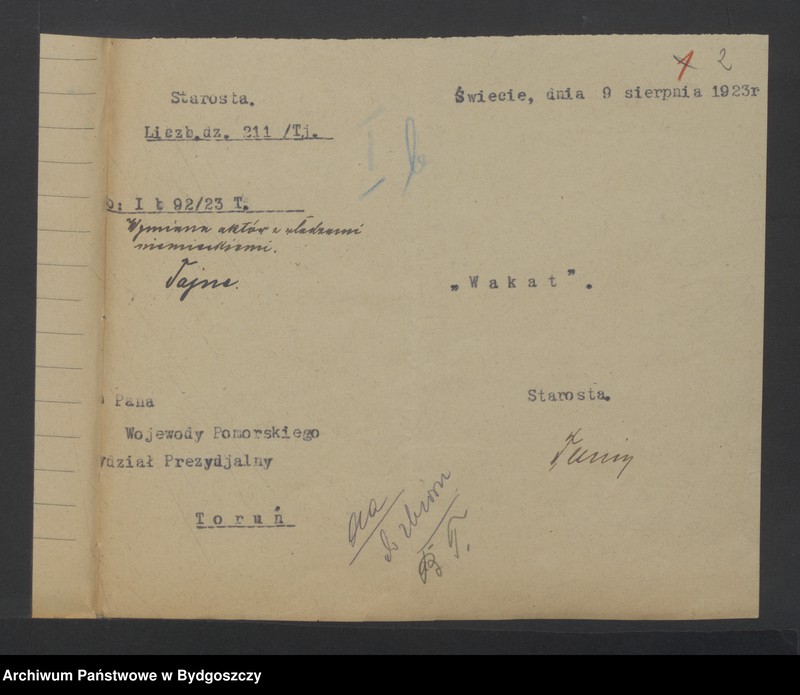 1 2
Starosta.
Świecie, dnia 9 sierpnia 1923r
Liczb.dz. 211 /Tj.
I b
o: I b 92/23 T.
Wymiana aktów z władzami
niemieckiemi.
Tajne.
„Wakat”.
Pana
Starosta.
Wojewody Pomorskiego
ydział Prezydjalny
Toruń
aa
do zbioru
T.
Archiwum Państwowe w Bydgoszczy